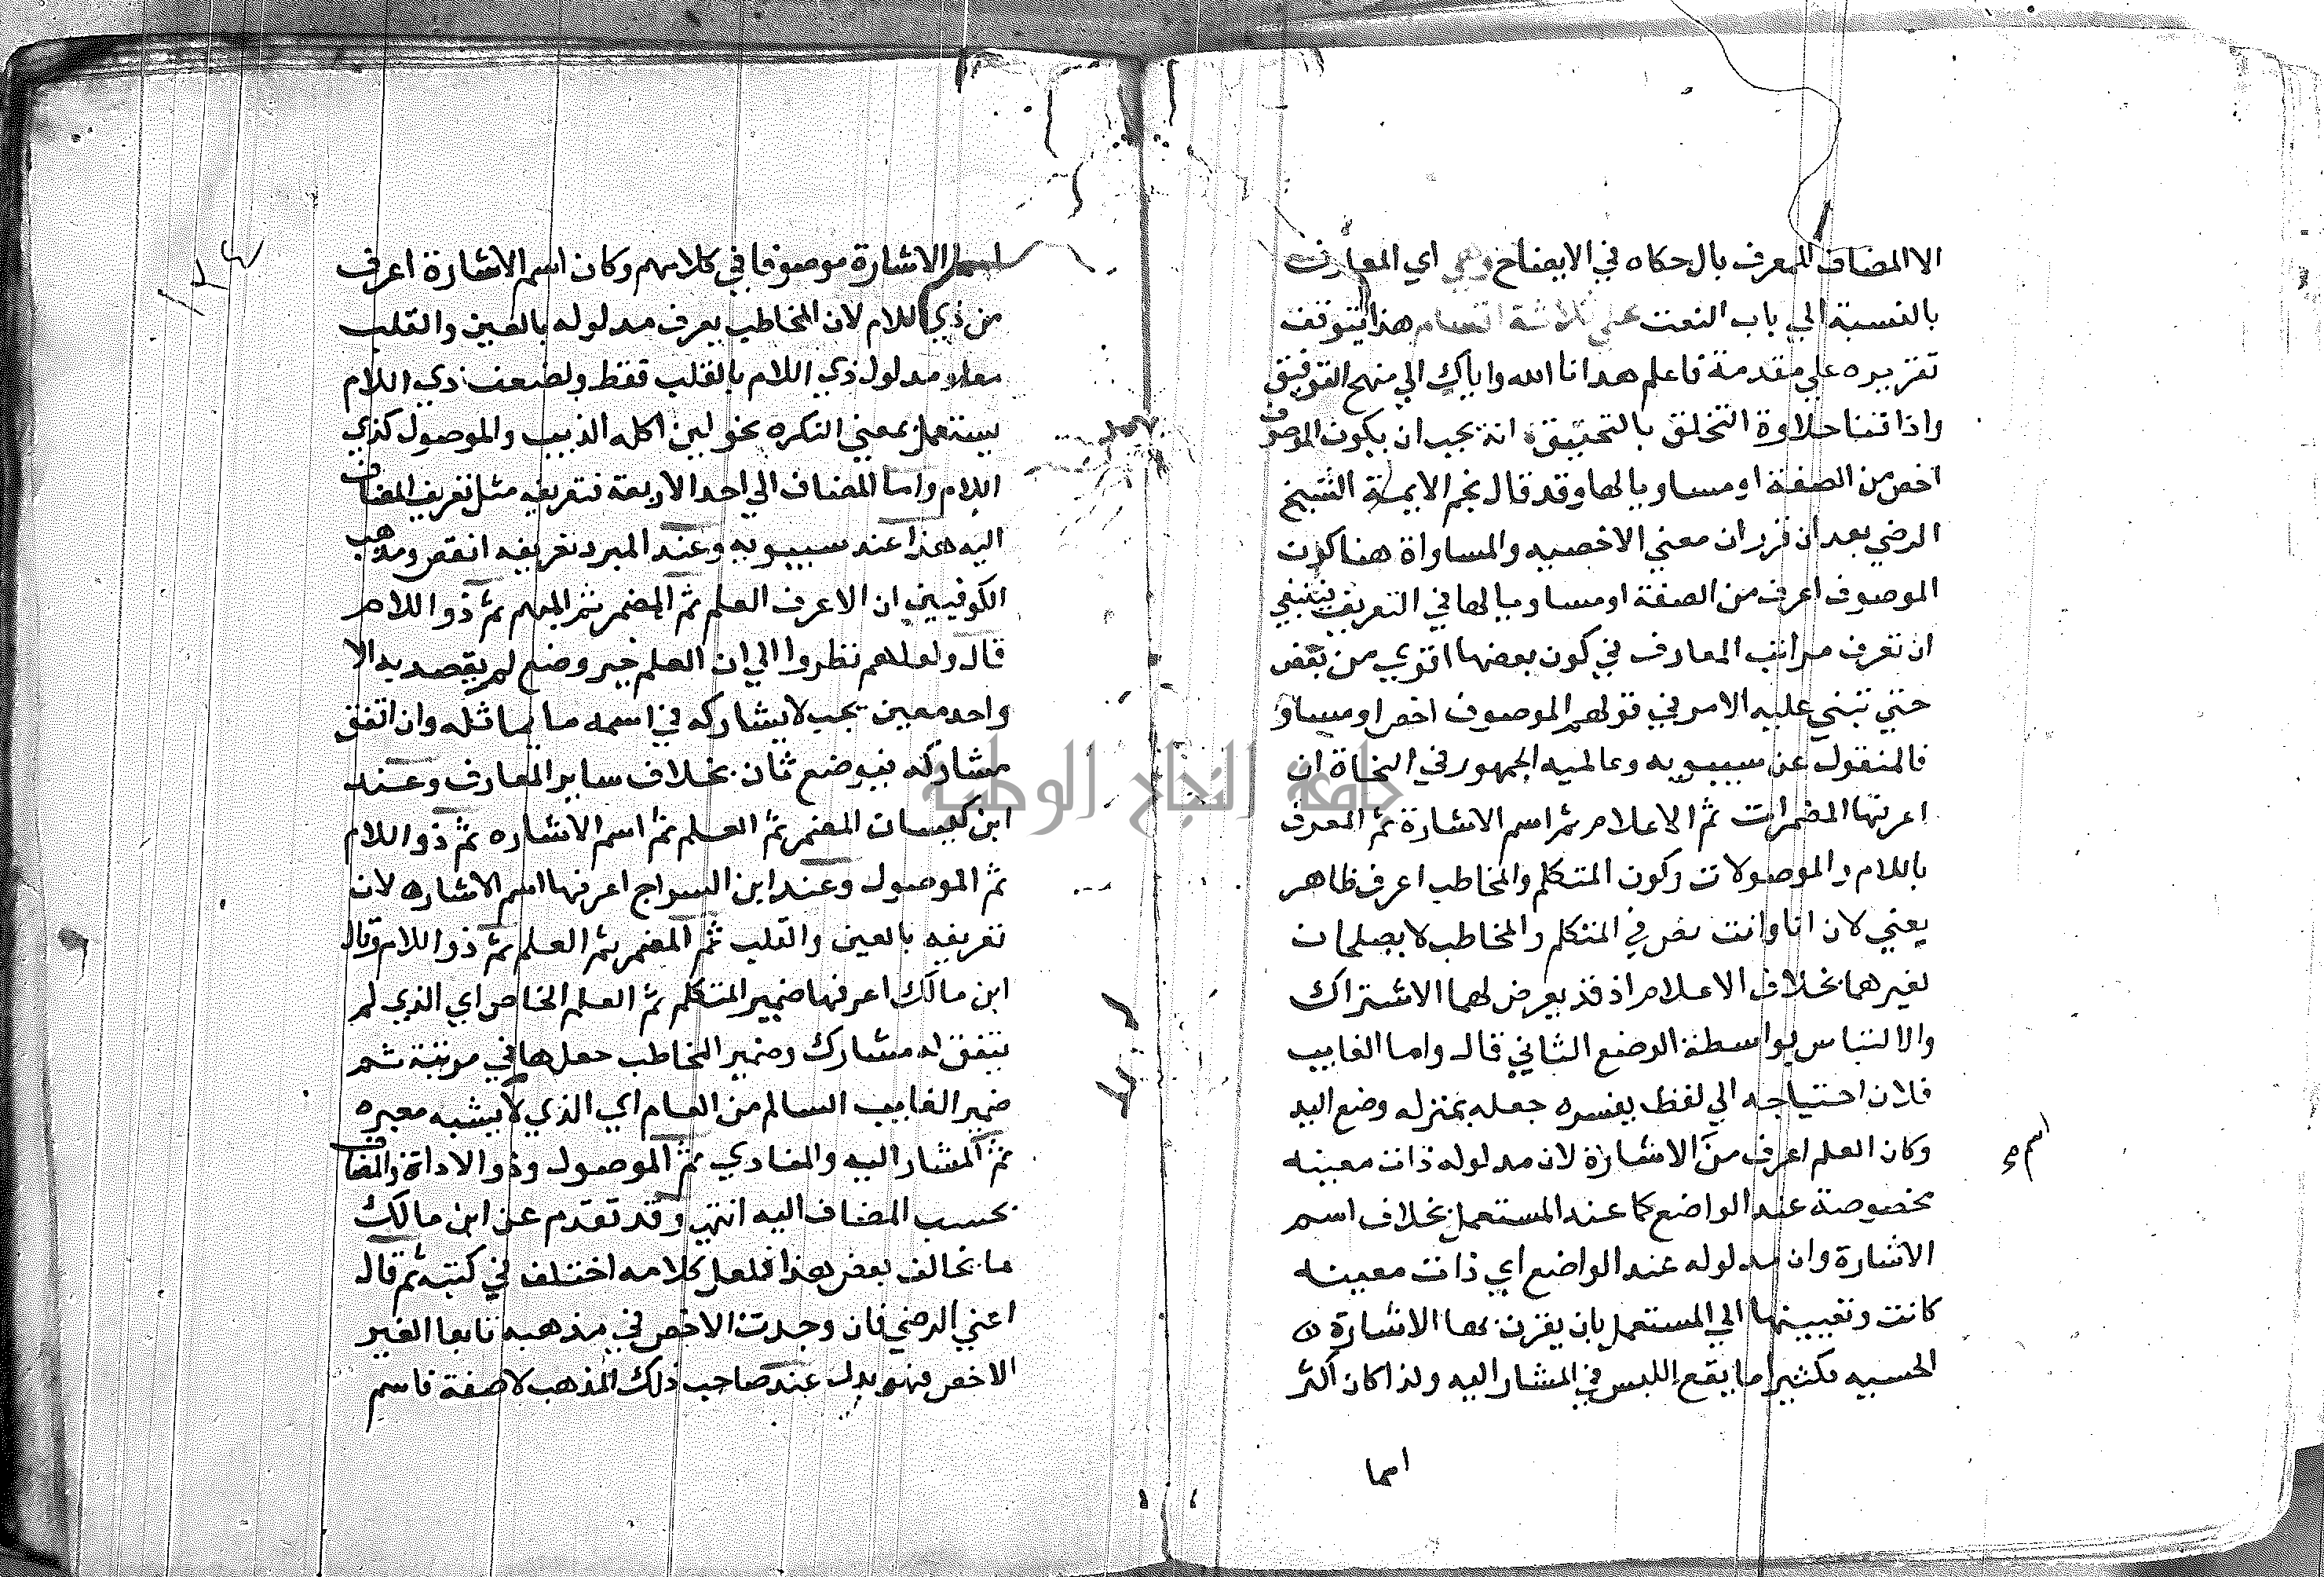 الا المضاف للمعرف بال حكاه في الايضاح وهي اي المعارف
بالنسبة الي باب النعت علي ثلاثة اقسام هذا يتوقف
تقريره علي مقدمة فاعلم هدانا الله واياك الي منهج التوفيق
واذاقنا حلاوة التخلق بالتحقيق انه يجب ان يكون الموصوف
اخص من الصفة او مساويا لها وقد قال نجم الايمة الشيخ
الرضي بعد ان قرر ان معني الاخصيه والمساواة هنا كون
الموصوف اعرف من الصفة او مساويا لها في التعريف ينبغي
ان تعرف مراتب المعارف في كون بعضها اقوي من بعض
حتي تبني عليه الامر في قولهم الموصوف اخص او مساو
فالمنقول عن سيبويه وعالميه الجمهور في النحاة ان
اعرفها المضمرات ثم الاعلام ثم اسم الاشارة ثم المعرف
باللام والموصولات وكون المتكلم والمخاطب اعرف ظاهر
يعني لان انا وانت نص في المتكلم والمخاطب لا يصلحان
لغيرهما بخلاف الاعلام اذ قد يعرض لهما الاشتراك
والالتباس بواسطة الوضع الثاني قال واما الغايب
فلان احتياجه الي لفظ يفسره جعله بمنزله وضع اليد
وكان العلم اعرف من الاشارة لان مدلوله ذات معينه
مخصوصة عند الواضع كما عند المستعمل بخلاف اسم
الاشارة وان مدلوله عند الواضع اي ذات معينه
كانت وتعيينها الي المستعمل بان يقرن بها الاشارة
الحسيه فكثيرا ما يقع اللبس في المشار اليه ولذا كان اكثر
اسما
اسم
اسما الاشارة موصوفا في كلامهم وكان اسم الاشارة اعرف
من ذي اللام لان المخاطب يعرف مدلوله بالعين والقلب
معا ومدلول ذي اللام بالقلب فقط ولضعف ذي اللام
يستعمل بمعني النكره نحو لين اكله الذيب والموصول كذي
اللام واما المضاف الي احد الاربعة فتعريفه مثل تعريف المضاف
اليه هذا عند سيبويه وعند المبرد تعريفه انقص ومذهب
الكوفيين ان الاعرف العلم ثم المضمر ثم المبهم ثم ذو اللام
قال ولعلهم نظروا الي ان العلم حين وضع لم يقصد به الا
واحد معين بحيث لا يشاركه في اسمه ما يماثله وان اتفق
مشاركه فبوضع ثان بخلاف ساير المعارف وعند
ابن كيسان المضمر ثم العلم ثم اسم الاشاره ثم ذو اللام
ثم الموصول وعند ابن السراج اعرفها اسم الاشاره لان
تعريفه بالعين والقلب ثم المضمر ثم العلم ثم ذو اللام وقال
ابن مالك اعرفها ضمير المتكلم ثم العلم الخاص اي الذي لم
يتفق له مشارك وضمير المخاطب جعلها في مرتبة ثم
ضمير الغايب السالم من العام اي الذي لا يشبه معبره
ثم المشار اليه والمنادي ثم الموصول وذو الاداة والمضاف
بحسب المضاف اليه انتهي وقد تقدم عن ابن مالك
ما يخالف بعض هذا فلعل كلامه اختلف في كتبه ثم قال
اعني الرضي فان وجدت الاخص في مذهبه تابعا لغير
الاخص فهو بدل عند صاحب ذلك المذهب لا صفة فاسم
جامعة النجاح الوطنية